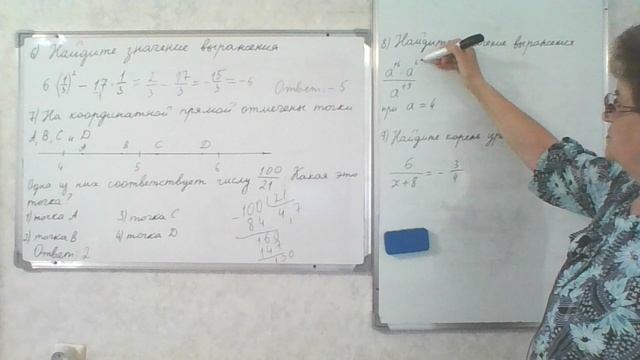 6) Найдите значение выражения
6 (1/3)² - 17 · 1/3 = 2/3 - 17/3 = - 15/3 = -5 Ответ: - 5
7) На координатной прямой отмечены точки
A, B, C и D
A B C D
4 5 6
Одна из них соответствует числу 100/21. Какая это
точка?
1) точка A 3) точка C
2) точка B 4) точка D
Ответ: 2
100 | 21
84 4,7
160
147
130
8) Найдите значение выражения
a¹⁶ · a
a¹⁹
при a = 6
9) Найдите корень
6/(x+8) = - 3/4